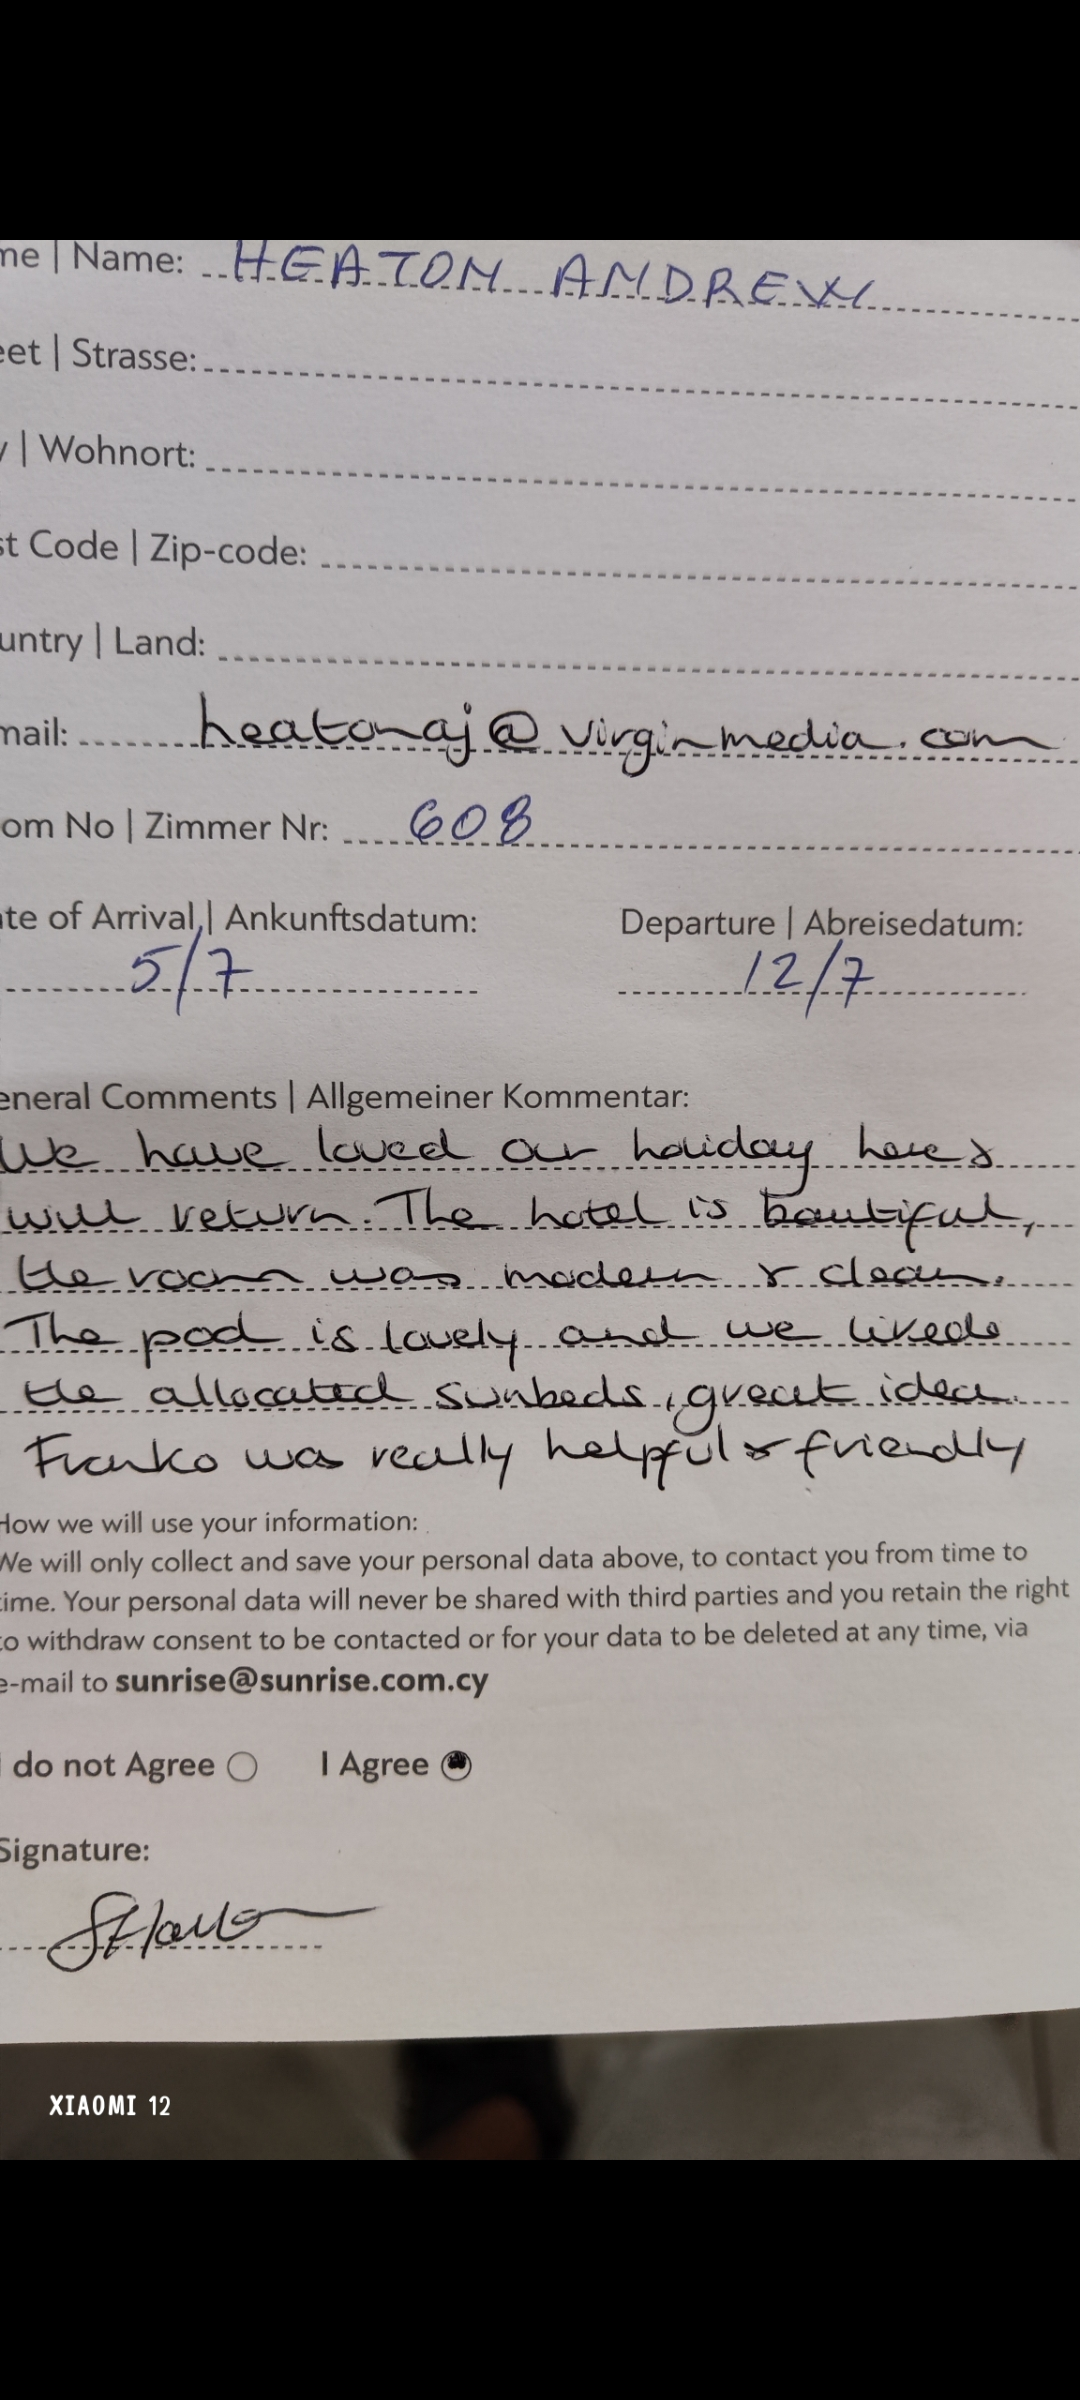 me | Name: HEATON ANDREW
eet | Strasse:
y | Wohnort:
st Code | Zip-code:
untry | Land:
mail: heatonaj@virginmedia.com
om No | Zimmer Nr: 608
te of Arrival | Ankunftsdatum: Departure | Abreisedatum:
5/7 12/7
eneral Comments | Allgemeiner Kommentar:
We have loved our holiday here &
will return. The hotel is beautiful,
the room was modern & clean.
The pool is lovely and we liked
the allocated sunbeds, great idea.
Franko was really helpful & friendly
How we will use your information:
We will only collect and save your personal data above, to contact you from time to
time. Your personal data will never be shared with third parties and you retain the right
to withdraw consent to be contacted or for your data to be deleted at any time, via
e-mail to sunrise@sunrise.com.cy
I do not Agree I Agree
Signature:
XIAOMI 12